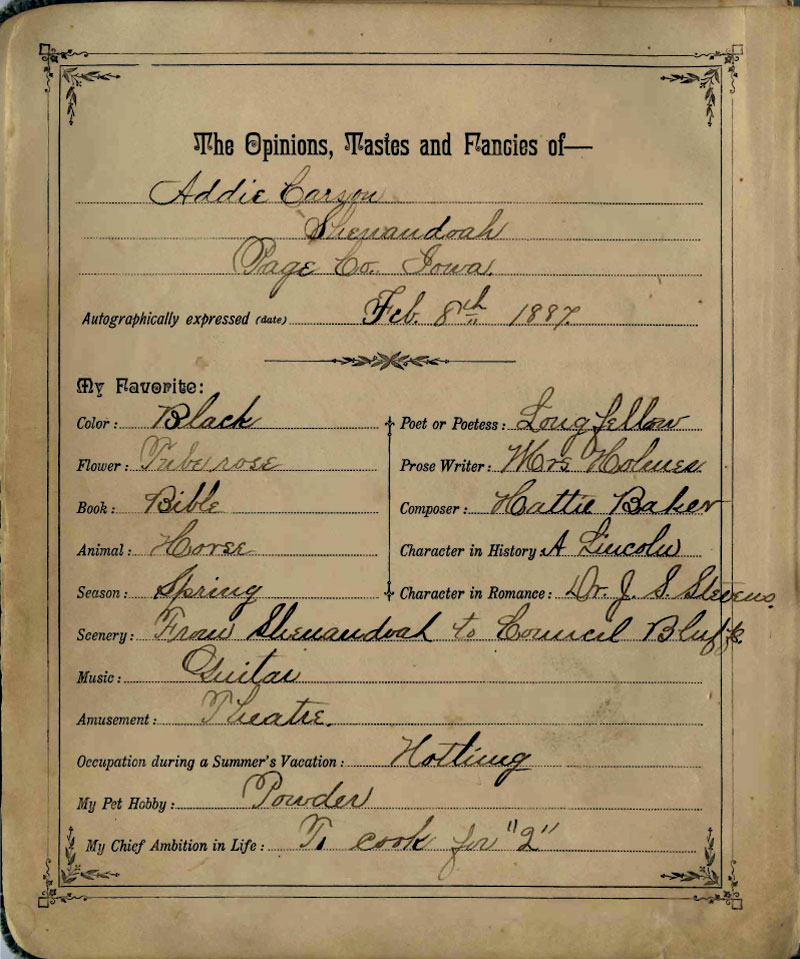 The Opinions, Tastes and Fancies of—
Addie Carson
Shenandoah
Page Co. Iowa.
Autographically expressed (date) Feb. 8th 1887.
My Favorite:
Color: Black
Flower: Tube rose
Book: Bible
Animal: Horse
Season: Spring
Poet or Poetess: Longfellow
Prose Writer: Mrs Holmes
Composer: Hattie Baker
Character in History: A Lincoln
Character in Romance: Dr. J. S. Stevens.
Scenery: From Shenandoah to Council Bluffs.
Music: Guitar
Amusement: Theatre.
Occupation during a Summer's Vacation:
My Pet Hobby: Powder
My Chief Ambition in Life: To cook for "2"